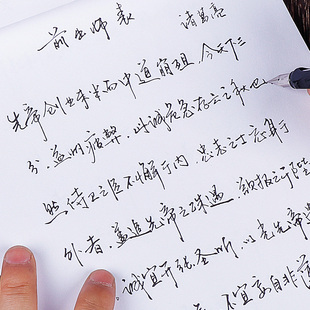 前出师表 诸葛亮
先帝创业未半而中道崩殂，今天下三
分，益州疲弊，此诚危急存亡之秋也
然侍卫之臣不懈于内，忠志之士忘身于
外者，盖追先帝之殊遇，欲报之于陛
诚宜开张圣听，以光先帝遗
不宜妄自菲薄